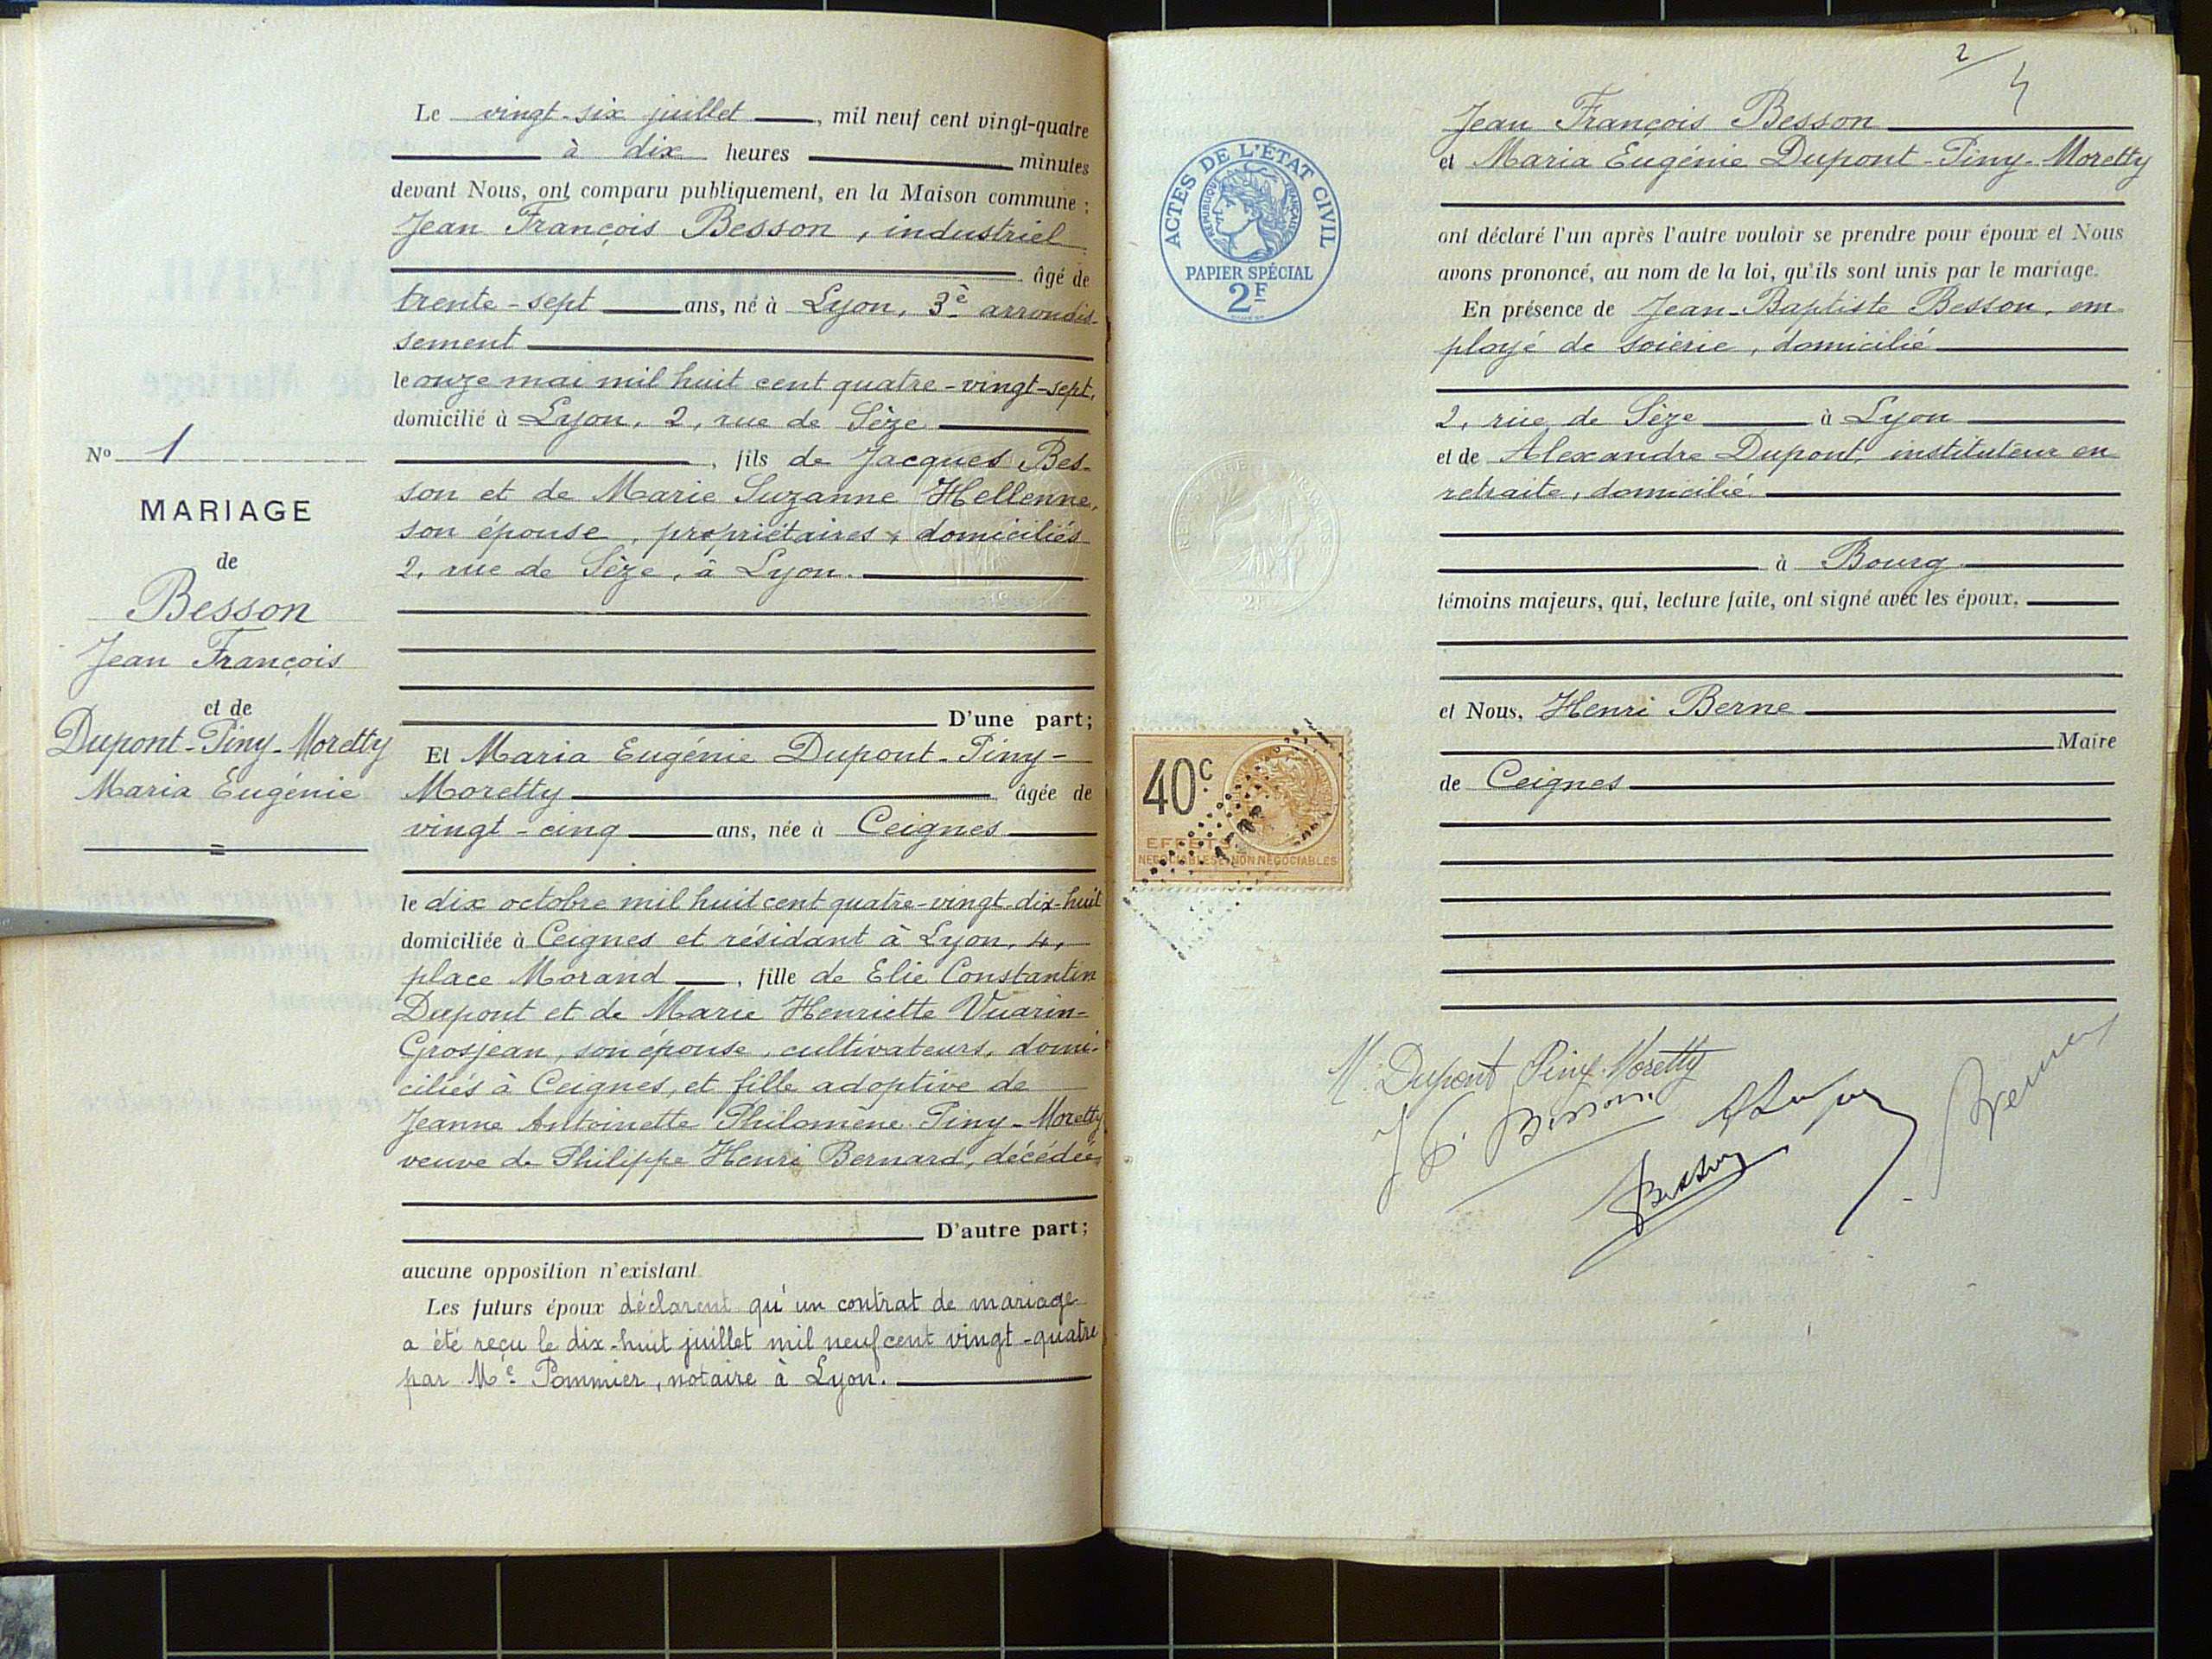 Le vingt-six juillet, mil neuf cent vingt-quatre
à dix heures minutes
devant Nous, ont comparu publiquement, en la Maison commune :
Jean François Besson, industriel
âgé de
trente-sept ans, né à Lyon, 3è arrondis-
sement
le onze mai mil huit cent quatre-vingt-sept,
domicilié à Lyon, 2, rue de Sèze
, fils de Jacques Bes-
son et de Marie Suzanne Hellenne,
son épouse, propriétaires, domiciliés
2, rue de Sèze, à Lyon.
D'une part;
Et Maria Eugénie Dupont-Piny-
Moretty âgée de
vingt-cinq ans, née à Ceignes
le dix octobre mil huit cent quatre-vingt-dix-huit
domiciliée à Ceignes et résidant à Lyon, 4,
place Morand, fille de Elie Constantin
Dupont et de Marie Henriette Vuarin-
Grosjean, son épouse, cultivateurs, domi-
ciliés à Ceignes, et fille adoptive de
Jeanne Antoinette Philomène Piny-Moretty
veuve de Philippe Henri Bernard, décédée
D'autre part;
aucune opposition n'existant
Les futurs époux déclarent qu'un contrat de mariage
a été reçu le dix-huit juillet mil neuf cent vingt-quatre
par Me Pommier, notaire à Lyon.
No 1
MARIAGE
de
Besson
Jean François
et de
Dupont-Piny-Moretty
Maria Eugénie
2
ACTES DE L'ÉTAT CIVIL
RÉPUBLIQUE FRANÇAISE
PAPIER SPÉCIAL
2F
2F
40c
EFFETS
NÉGOCIABLES & NON NÉGOCIABLES
Jean François Besson
et Maria Eugénie Dupont-Piny-Moretty
ont déclaré l'un après l'autre vouloir se prendre pour époux et Nous
avons prononcé, au nom de la loi, qu'ils sont unis par le mariage.
En présence de Jean-Baptiste Besson, em-
ployé de soierie, domicilié
2, rue de Sèze à Lyon
et de Alexandre Dupont, instituteur en
retraite, domicilié
à Bourg
témoins majeurs, qui, lecture faite, ont signé avec les époux,
et Nous, Henri Berne
Maire
de Ceignes
M. Dupont Piny-Moretty
Besson
Besson